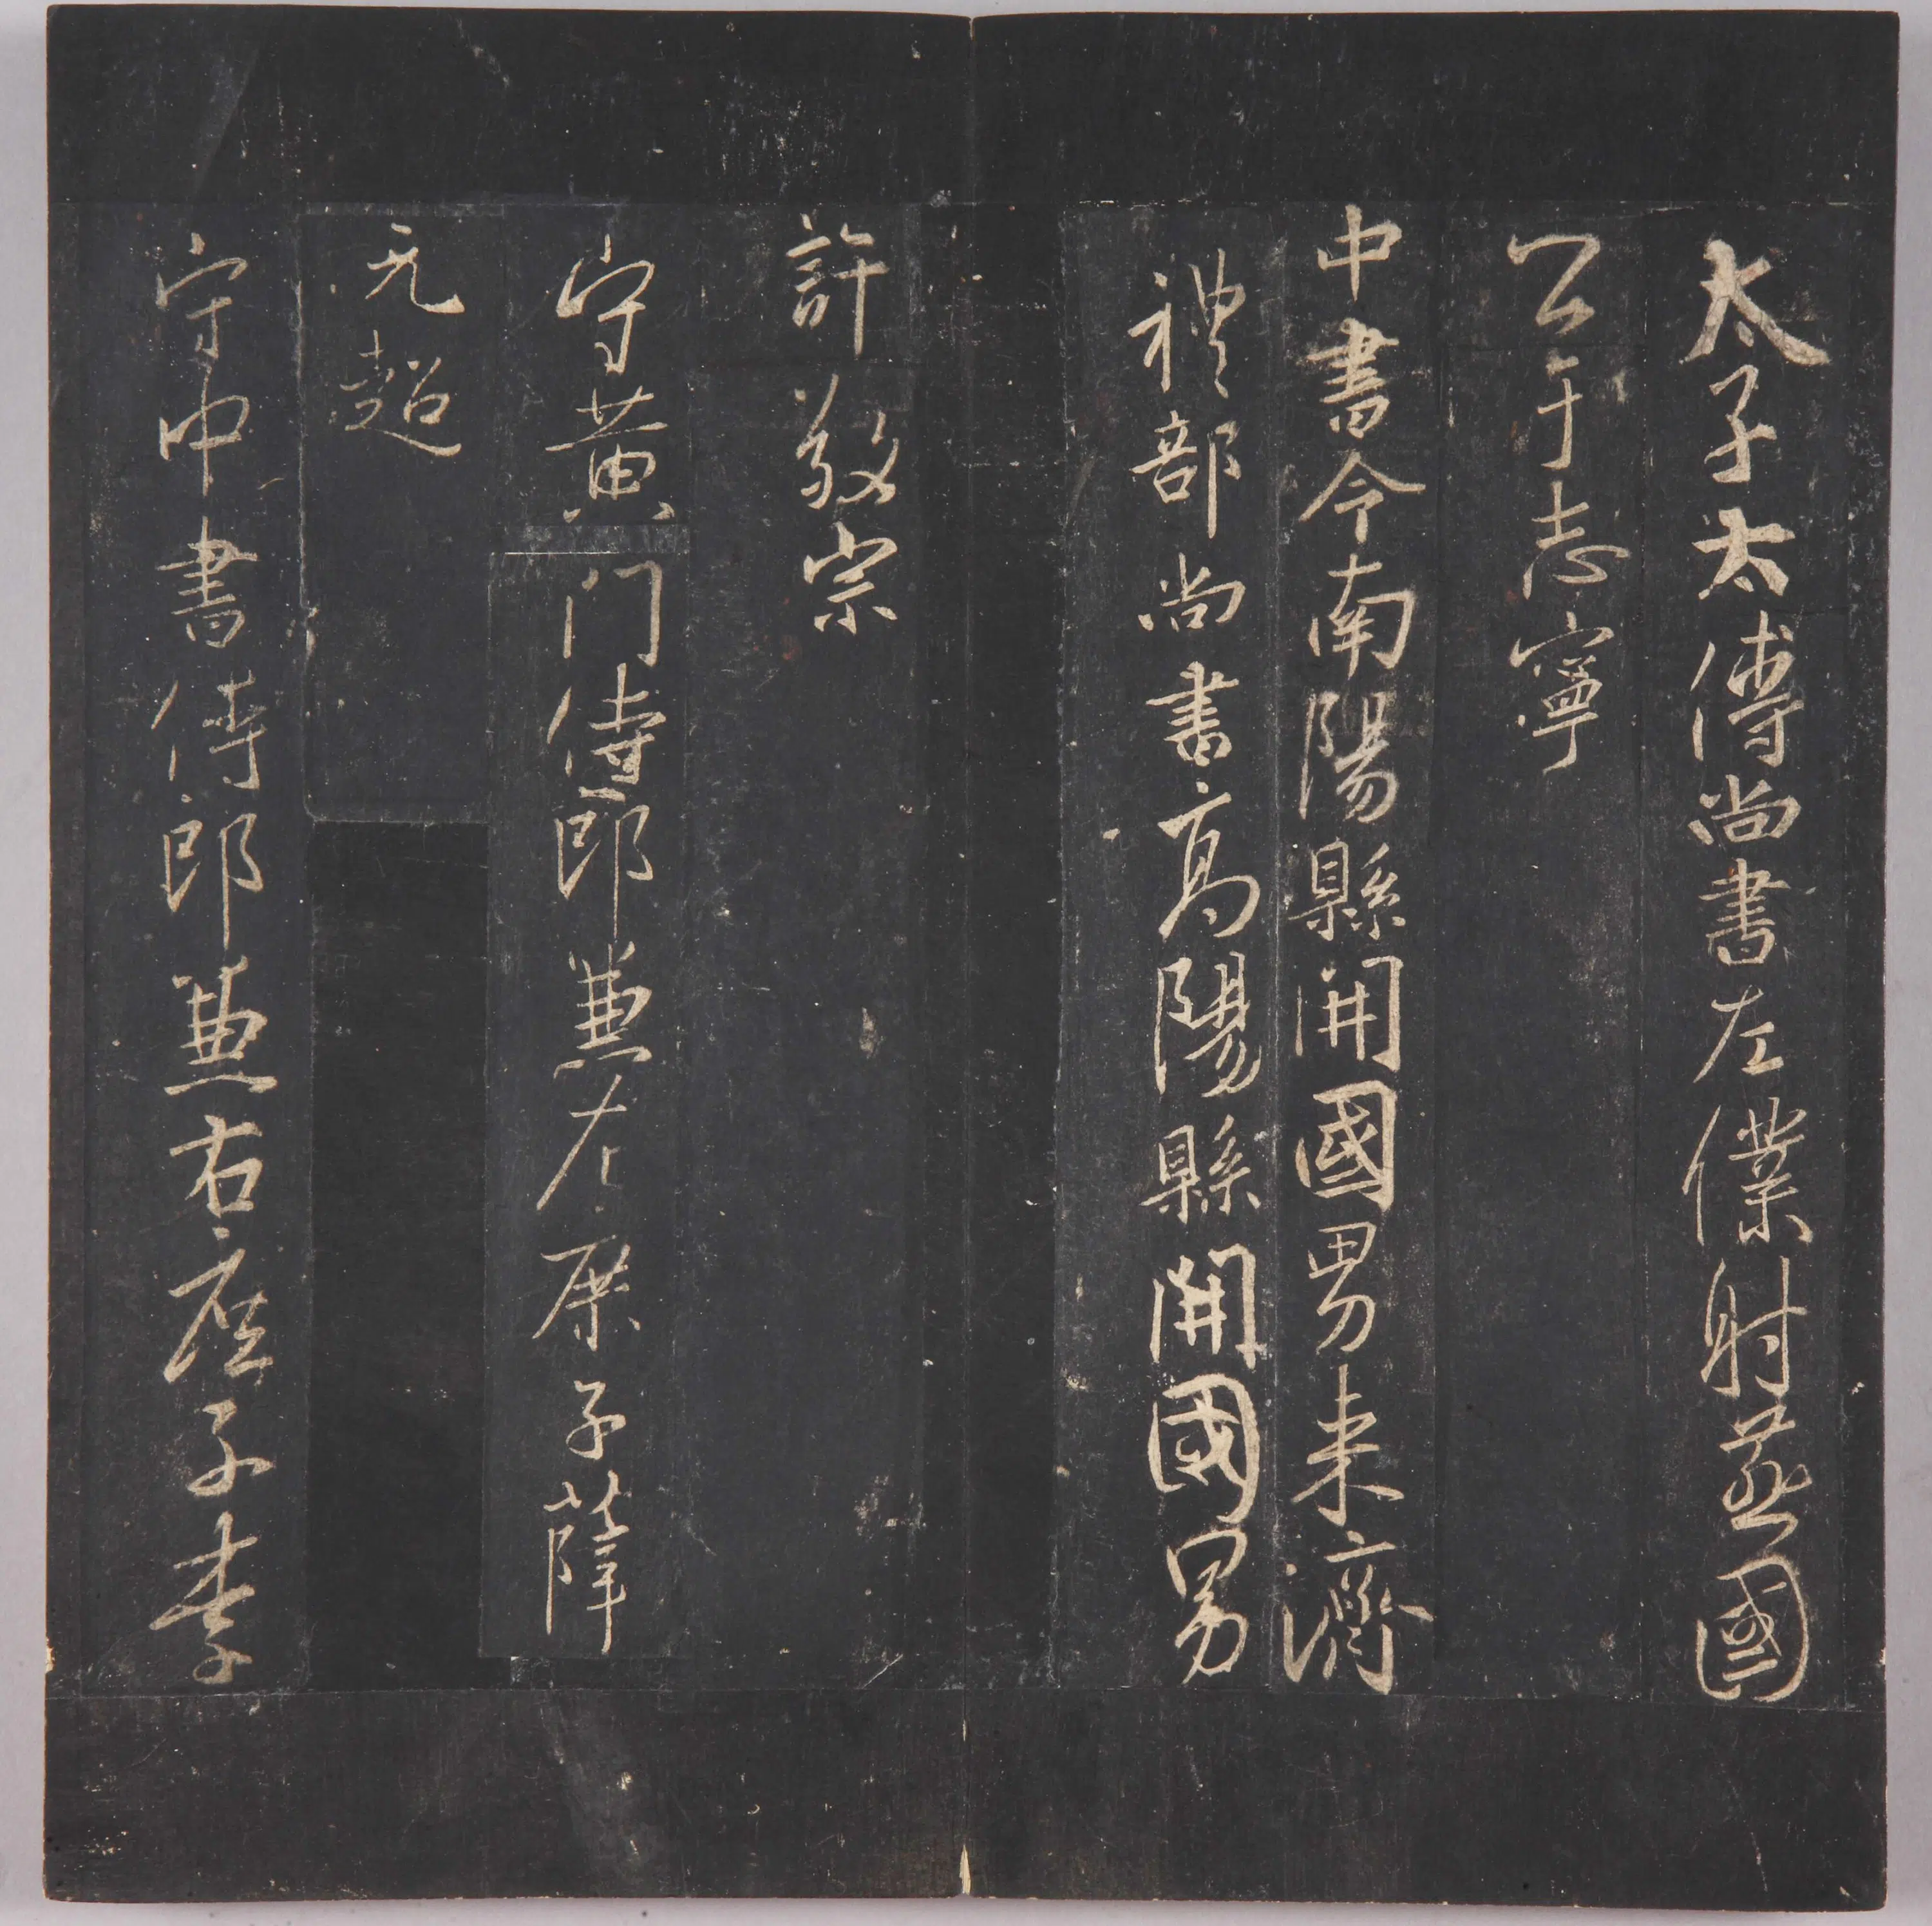 太子太傅尚書左僕射燕國
公于志寧
中書令南陽縣開國男来濟
禮部尚書高陽縣開國男
許敬宗
守黄门侍郎兼左庶子薛
元超
守中書侍郎兼右庶子李